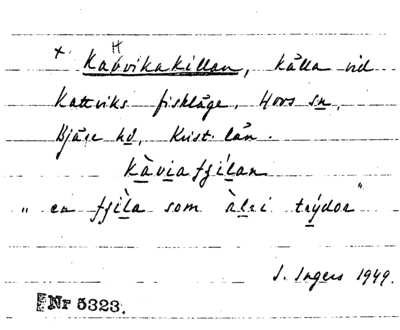 + Kattvikakillan, källa vid
Kattviks fiskläge, Hovs sn,
Bjäre hd, Krist. län.
kàviafjílan
" en fjìla som àlri trýdor"
I. Ingers 1949.
Nr 5323.